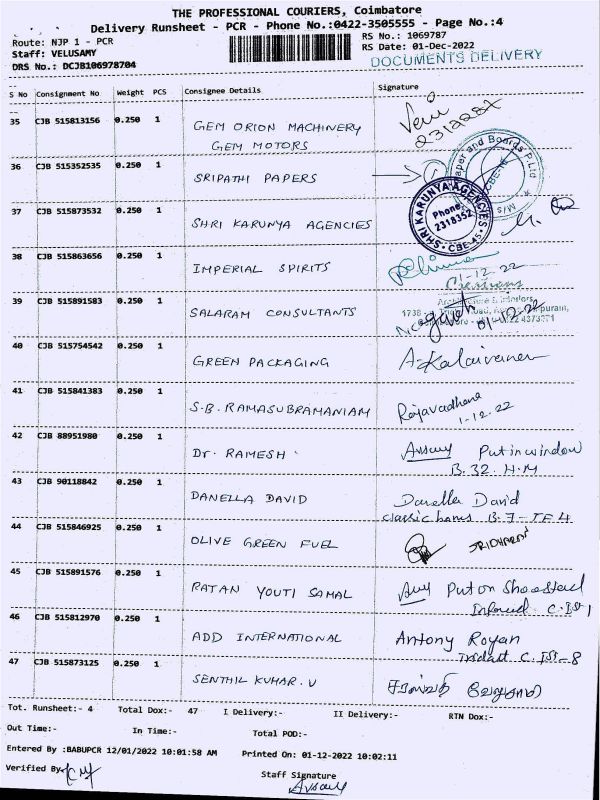 THE PROFESSIONAL COURIERS, Coimbatore
Delivery Runsheet - PCR - Phone No.:0422-3505555 - Page No.:4
Route: NJP 1 - PCR
Staff: VELUSAMY
DRS No.: DCJB106978704
RS No.: 1069787
RS Date: 01-Dec-2022
DOCUMENTS DELIVERY
S No Consignment No Weight PCS Consignee Details Signature
35 CJB 515813156 0.250 1 GEM ORION MACHINERY
GEM MOTORS
2312287
36 CJB 515352535 0.250 1 SRIPATHI PAPERS
Paper and Boards P Ltd
M/S
37 CJB 515873532 0.250 1 SHRI KARUNYA AGENCIES
SHRI KARUNYA AGENCIES
Phone
2318352
CBE-45
38 CJB 515863656 0.250 1 IMPERIAL SPIRITS
1-12-22
39 CJB 515891583 0.250 1 SALARAM CONSULTANTS
Creations
Architecture & Interiors
01-12-22
40 CJB 515754542 0.250 1 GREEN PACKAGING A-Kalaivanan
41 CJB 515841383 0.250 1 S.B. RAMASUBRAMANIAM Rajavadhana
1-12-22
42 CJB 88951980 0.250 1 Dr. RAMESH Put in window
B.32. H.M
43 CJB 90118842 0.250 1 DANELLA DAVID Danella David
B.7-TF4
44 CJB 515846925 0.250 1 OLIVE GREEN FUEL
45 CJB 515891576 0.250 1 RATAN YOUTI SAMAL Put on
Informed C.
46 CJB 515812970 0.250 1 ADD INTERNATIONAL Antony Royan
47 CJB 515873125 0.250 1 SENTHIL KUMAR.V
Tot. Runsheet:- 4 Total Dox:- 47 I Delivery:- II Delivery:- RTN Dox:-
Out Time:- In Time:- Total POD:-
Entered By :BABUPCR 12/01/2022 10:01:58 AM Printed On: 01-12-2022 10:02:11
Verified By:-
Staff Signature